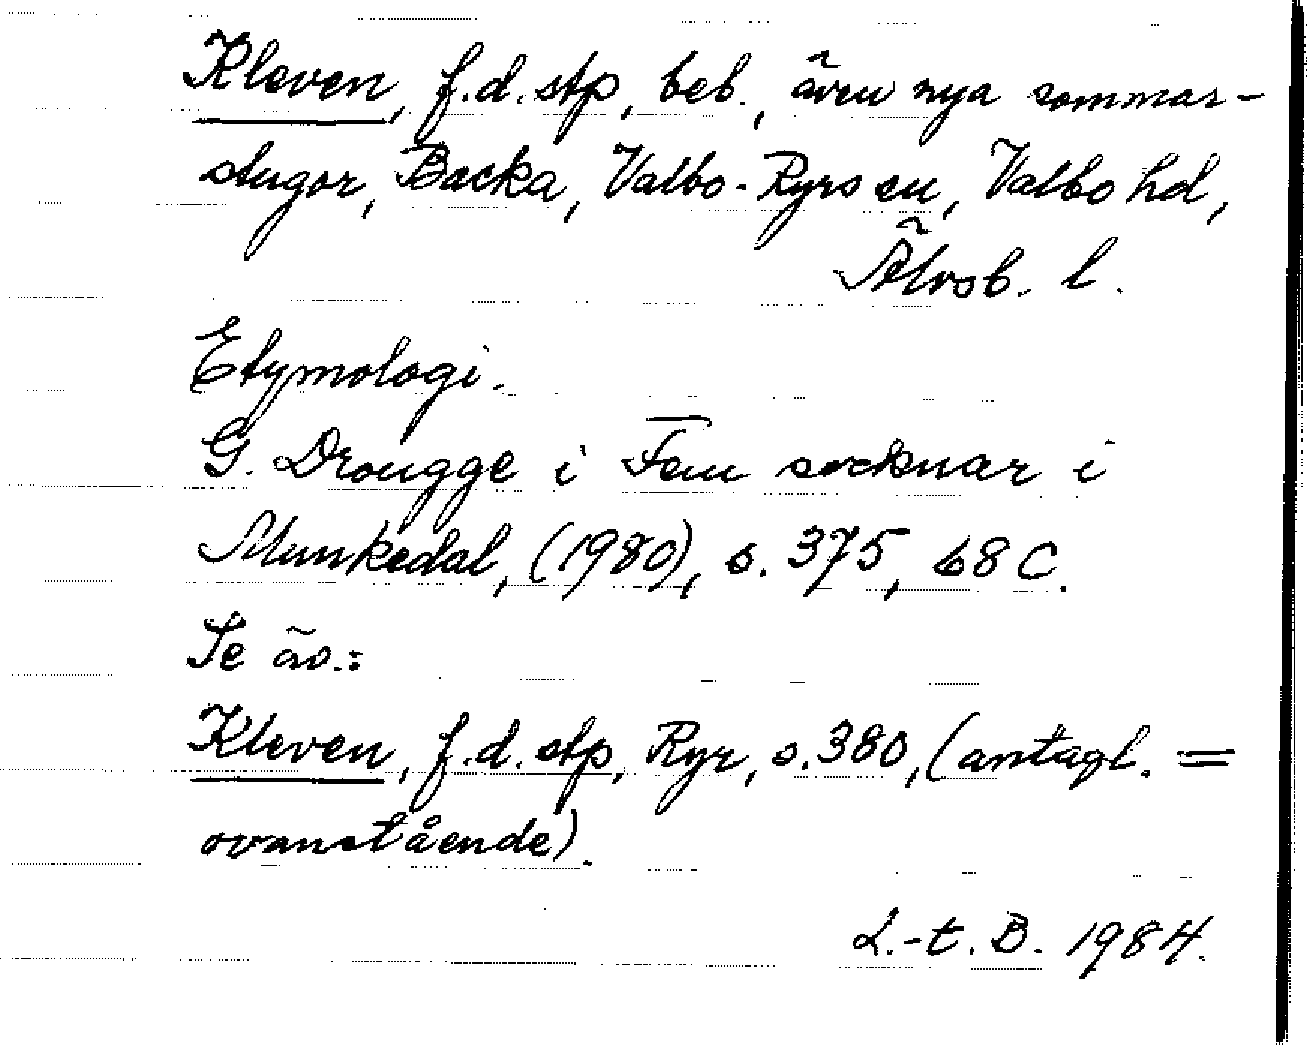 Kleven, f.d. stp, beb., även nya sommar-
stugor, Backa, Valbo-Ryrs sn, Valbo hd,
Älvsb. l.
Etymologi.
G. Drougge i Fem socknar i
Munkedal, (1980), s. 375, 68 C.
Se äv.:
Kleven, f.d. stp, Ryr, s. 380, (antagl. =
ovanstående).
L.-t. B. 1984.